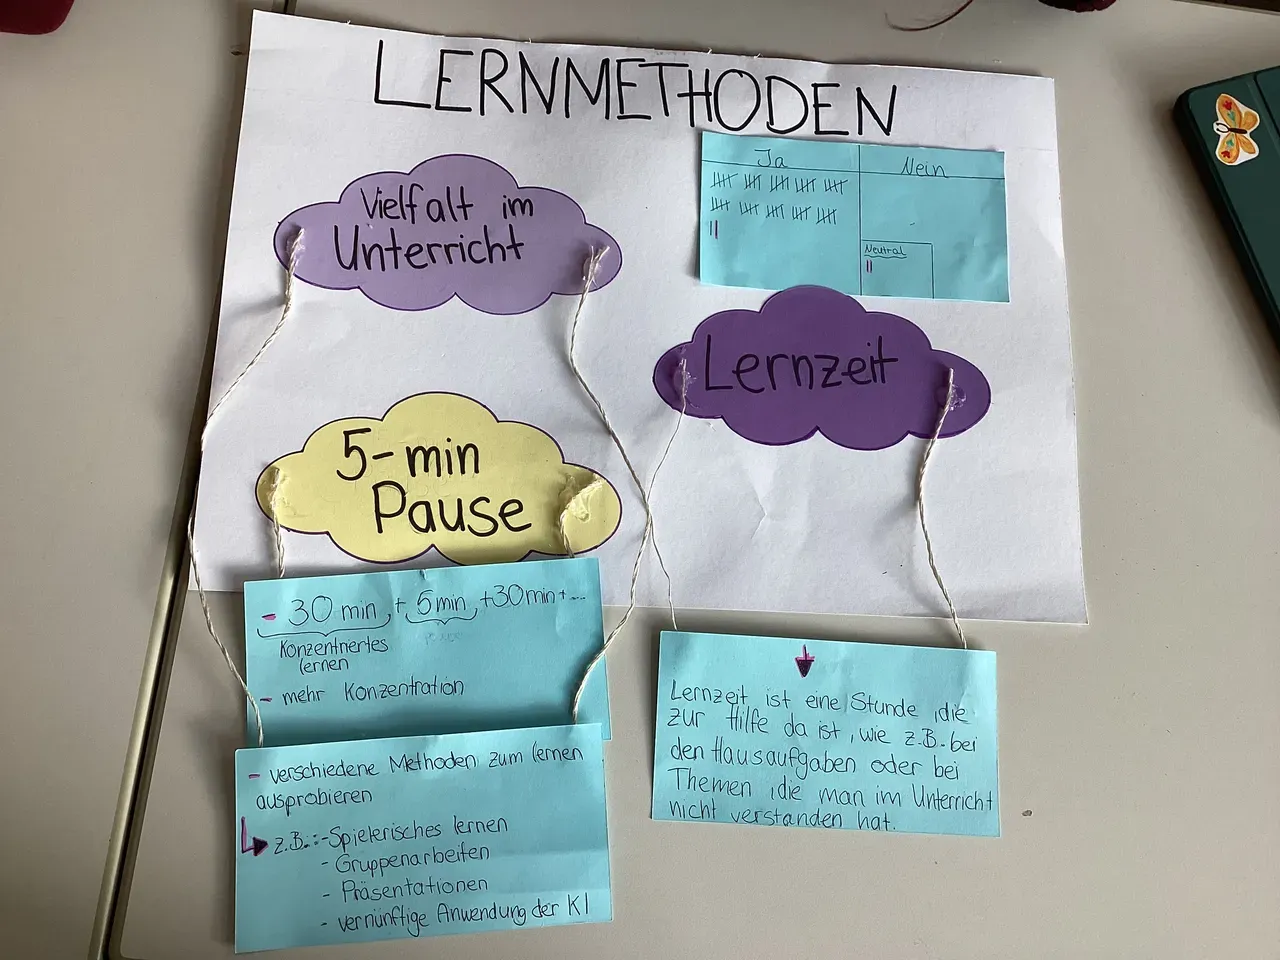 LERNMETHODEN
Vielfalt im
Unterricht
Ja
Nein
Neutral
Lernzeit
5-min
Pause
- 30 min + 5 min + 30 min + ...
Konzentriertes
lernen
- mehr Konzentration
- verschiedene Methoden zum lernen
ausprobieren
z.B.: - Spielerisches lernen
- Gruppenarbeiten
- Präsentationen
- vernünftige Anwendung der KI
Lernzeit ist eine Stunde, die
zur Hilfe da ist, wie z.B. bei
den Hausaufgaben oder bei
Themen, die man im Unterricht
nicht verstanden hat.